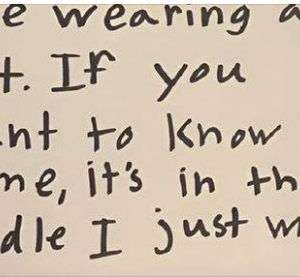 e wearing a
t. If you
nt to know
me, it's in th
dle I just w